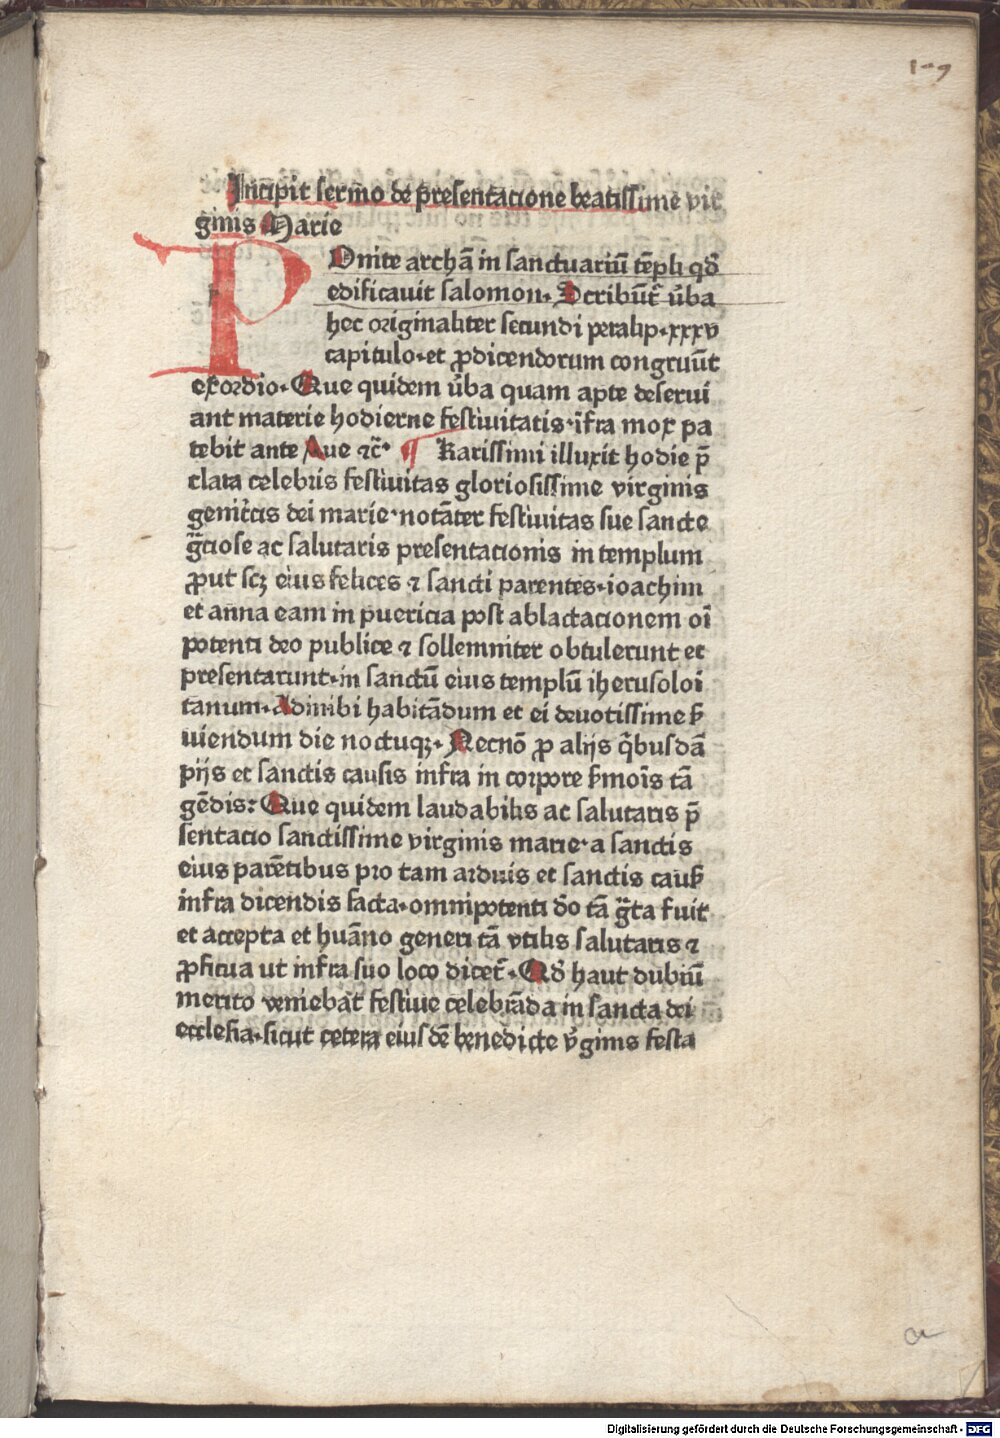 Incipit sermo de presentacione beatissime vir
ginis Marie
POnite archā in sanctuariū tēpli qď
edificauit salomon. Scribūt᷑ v̓ba
hec originaliter secundi paralip. xxxv
capitulo. et ꝓdicendorum congruūt
exordio. Que quidem v̓ba quam apte deserui
ant materie hodierne festiuitatis. īfra mox pa
tebit ante Aue ⁊c̄. ¶ Karissimi illuxit hodie p̄
clara celebris festiuitas gloriosissime virginis
genitͥcis dei marie. notāter festiuitas sue sancte
gͣciose ac salutaris presentacionis in templum
ꝓut scꝫ eius felices ⁊ sancti parentes. ioachim
et anna eam in puericia post ablactacionem oī
potenti deo publice ⁊ sollemniter obtulerunt et
presentarunt. in sanctū eius templū iherusoloi
tanum. Ad inibi habitādum et ei deuotissime ẜ
uiendum die noctuqꝫ. Necnō ꝓ alijs q̄busdā
pijs et sanctis causis infra in corpore ẜmoīs tā
gēdis: Que quidem laudabilis ac salutaris p̄
sentacio sanctissime virginis marie. a sanctis
eius parētibus pro tam arduis et sanctis cauẜ
infra dicendis facta. omnipotenti do̅ tā gͣta fuit
et accepta et huāno generi tā vtilis salutaris ⁊
ꝓficua ut infra suo loco dicet᷑. Qď haut dubiū
merito veniebāt festiue celebrāda in sancta dei
ecclesia. sicut cetera eiusdē benedicte v̓ginis festa
a
Digitalisierung gefördert durch die Deutsche Forschungsgemeinschaft - DFG